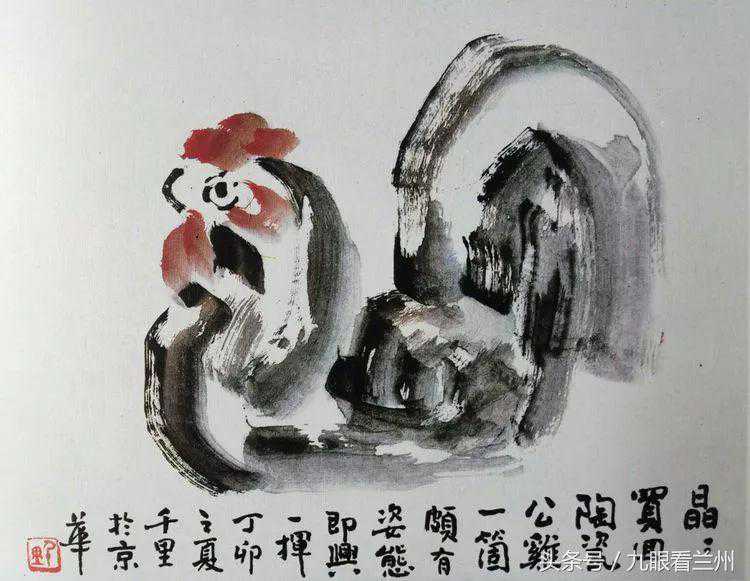 晶々
買回
陶瓷
公雞
一箇
頗有
姿態
即興
一揮
丁卯
之夏
千里
於京
華
头条号/九眼看兰州